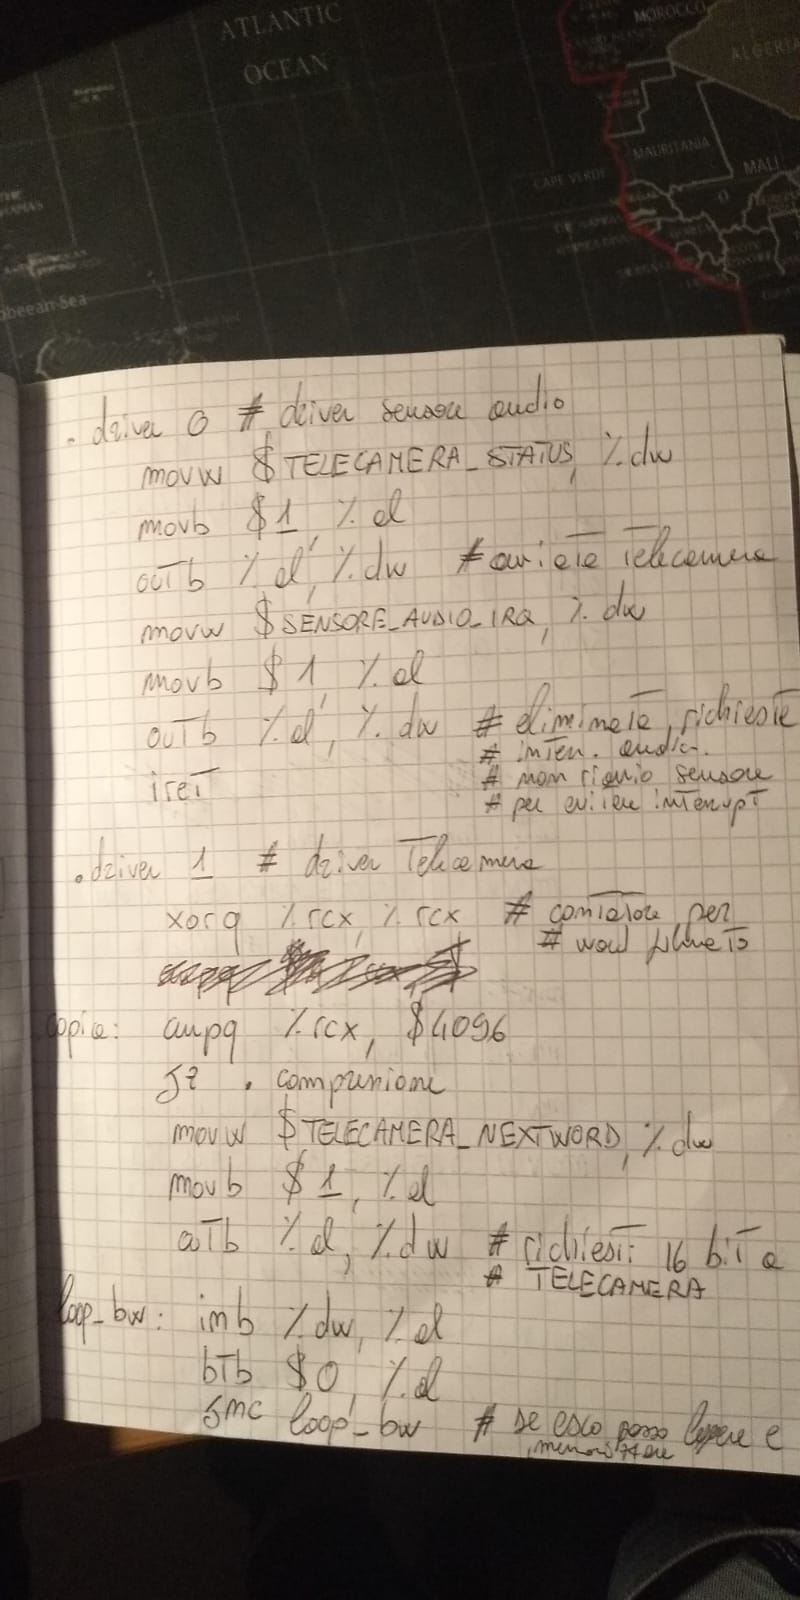 ATLANTIC
OCEAN
MOROCCO
ALGERIA
MAURITANIA
MALI
CAPE VERDE
.driver 0 # driver sensore audio
movw $TELECAMERA_STATUS, %dw
movb $1, %al
outb %al, %dw # avviata telecamera
movw $SENSORE_AUDIO_IRQ, %dw
movb $1, %al
outb %al, %dw # eliminata richiesta
# inter. audio.
iret # non riavvio sensore
# per evitare interrupt
.driver 1 # driver Telecamera
xorq %rcx, %rcx # contatore per
# word
copia: cmpq %rcx, $4096
jz .compressione
movw $TELECAMERA_NEXTWORD, %dw
movb $1, %al
outb %al, %dw # richiesti 16 bit a
# TELECAMERA
loop_bw: inb %dw, %al
btb $0, %al
jnc loop_bw # se esco posso leggere e
memorizzare